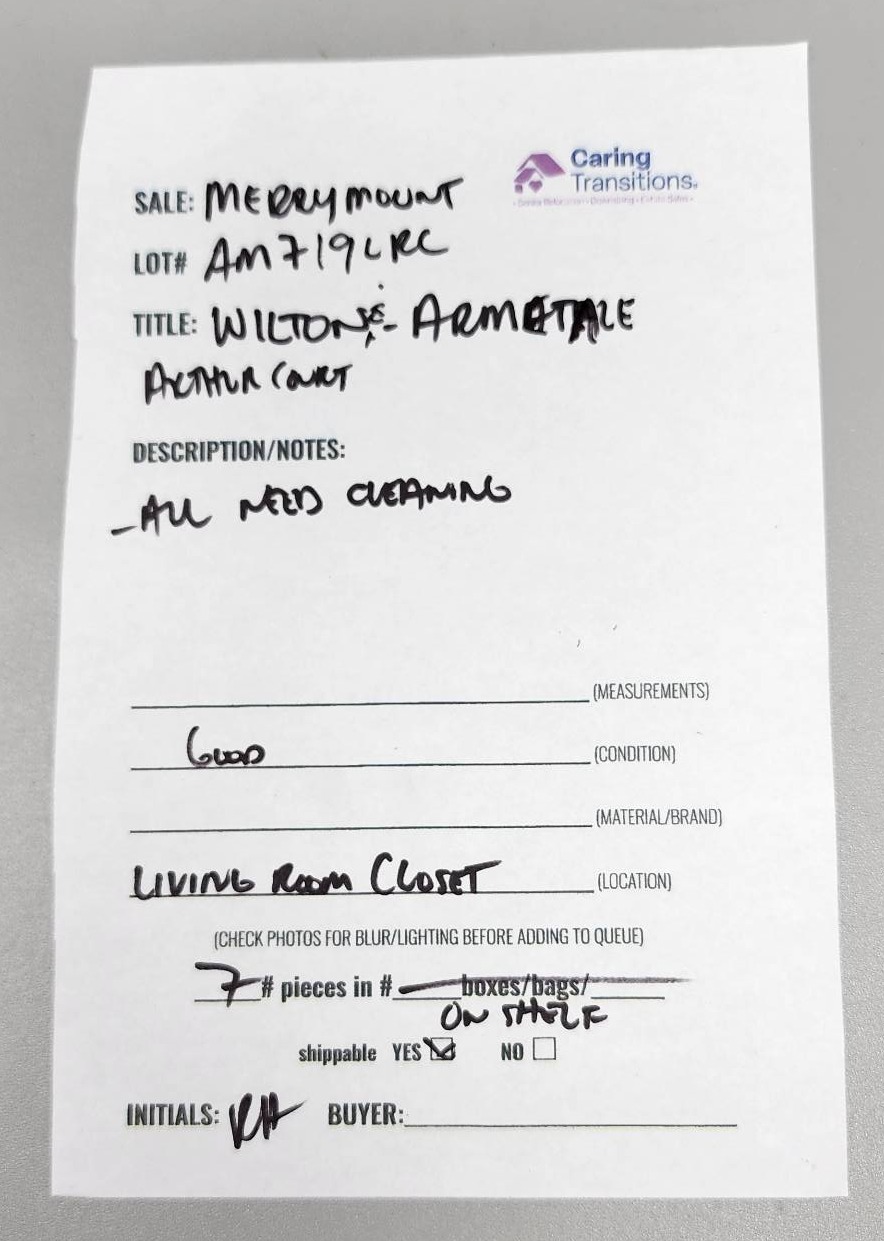 Caring
Transitions.
SALE: MERRYMOUNT
LOT# AM719LRC
TITLE: WILTON - ARMETALE
ARTHUR COURT
DESCRIPTION/NOTES:
- ALL NEED CLEANING
(MEASUREMENTS)
GOOD (CONDITION)
(MATERIAL/BRAND)
LIVING ROOM CLOSET (LOCATION)
(CHECK PHOTOS FOR BLUR/LIGHTING BEFORE ADDING TO QUEUE)
7 # pieces in # boxes/bags/
ON SHELF
shippable YES NO
INITIALS: RH BUYER: